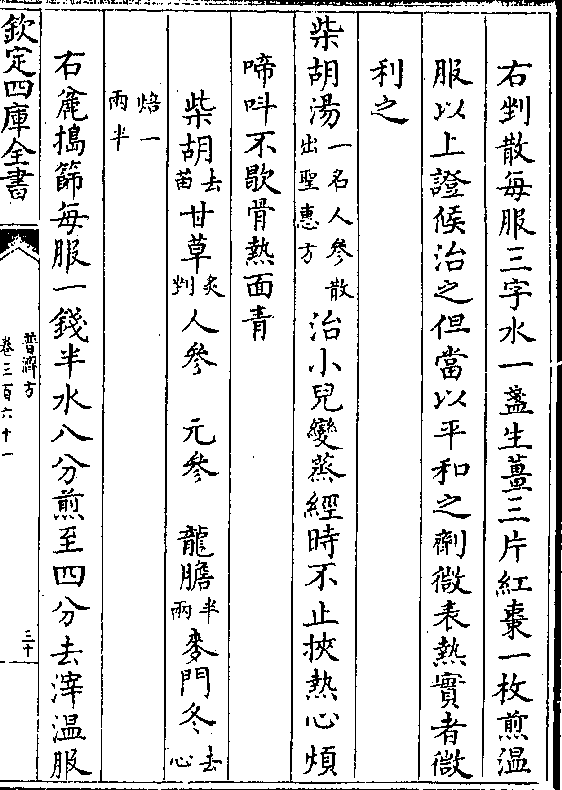 右剉散每服三字水一盞生薑三片紅棗一枚煎温
服以上證候治之但當以平和之劑微表熱實者微
利之
柴胡湯一名人參散出聖惠方治小兒變蒸經時不止挾熱心煩
啼呌不歇骨熱面青
柴胡去苗甘草炙剉人參 元參 龍膽半兩麥門冬去心
焙一兩半
右麄搗篩每服一錢半水八分煎至四分去滓温服
欽定四庫全書
普濟方
卷三百六十一
三十